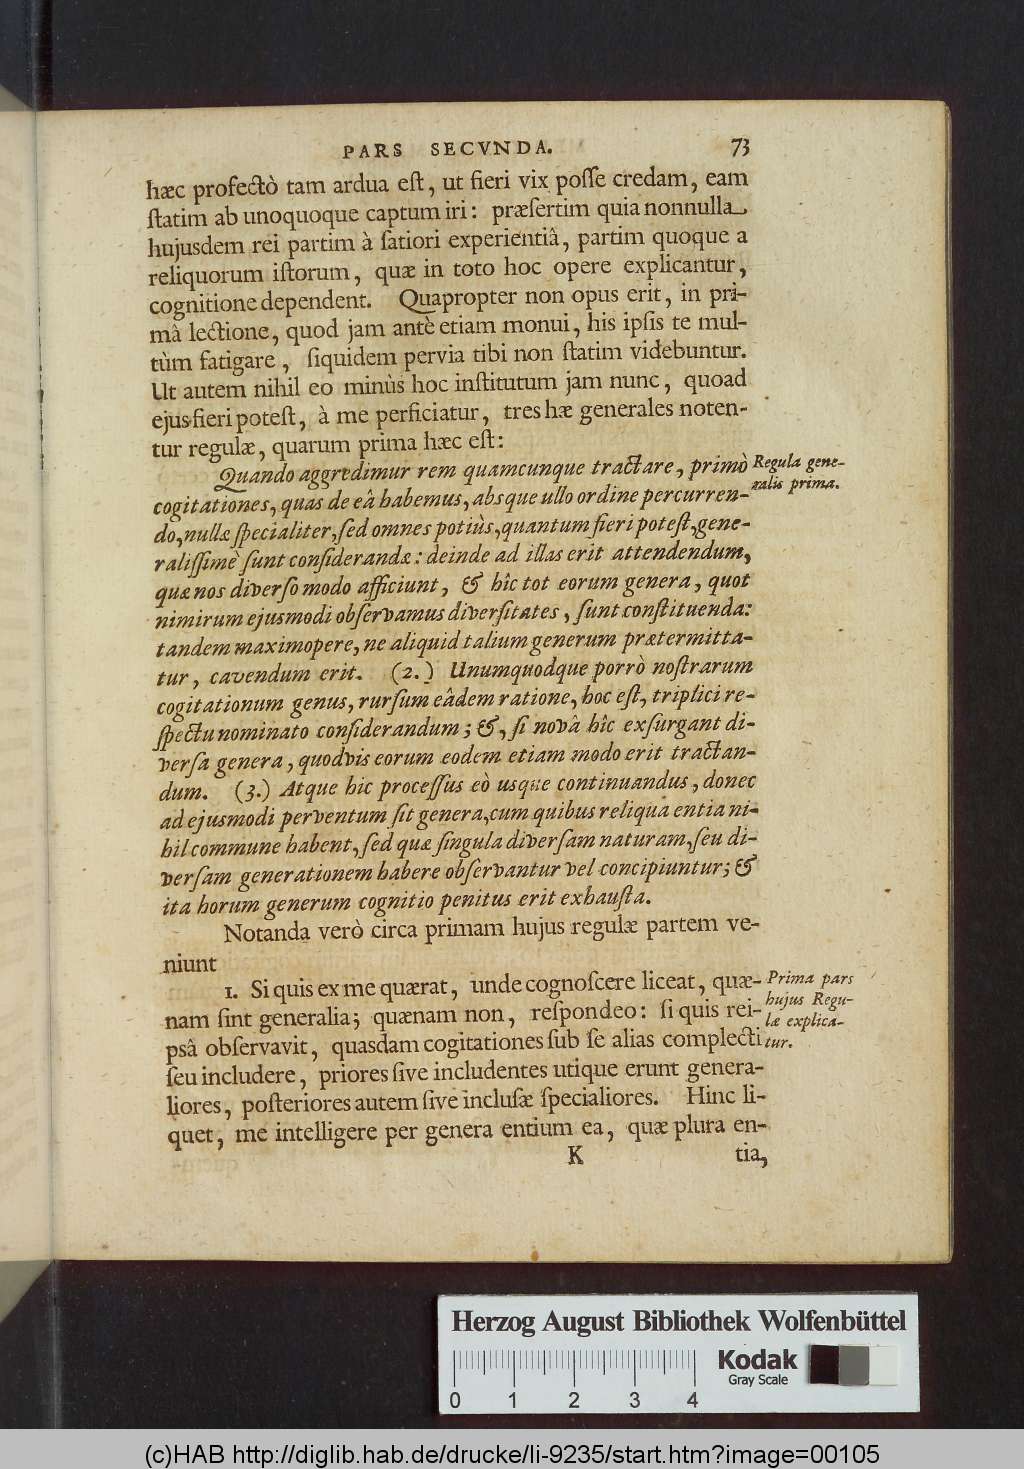 PARS SECVNDA. 73
hæc profectò tam ardua eſt, ut fieri vix poſſe credam, eam
ſtatim ab unoquoque captum iri: præſertim quia nonnulla
hujusdem rei partim à ſatiori experientiâ, partim quoque a
reliquorum iſtorum, quæ in toto hoc opere explicantur,
cognitione dependent. Quapropter non opus erit, in pri-
mâ lectione, quod jam antè etiam monui, his ipſis te mul-
tùm fatigare, ſiquidem pervia tibi non ſtatim videbuntur.
Ut autem nihil eo minùs hoc inſtitutum jam nunc, quoad
ejus fieri poteſt, à me perficiatur, tres hæ generales noten-
tur regulæ, quarum prima hæc eſt:
Quando aggredimur rem quamcunque tractare, primò
Regula gene-
ralis prima.
cogitationes, quas de eâ habemus, absque ullo ordine percurren-
do, nullæ ſpecialiter, ſed omnes potiùs, quantum fieri poteſt, gene-
raliſſimè ſunt conſiderandæ: deinde ad illas erit attendendum,
quæ nos diverſo modo afficiunt, & hîc tot eorum genera, quot
nimirum ejusmodi obſervamus diverſitates, ſunt conſtituenda:
tandem maximopere, ne aliquid talium generum prætermitta-
tur, cavendum erit. (2.) Unumquodque porrò noſtrarum
cogitationum genus, rurſum eâdem ratione, hoc eſt, triplici re-
ſpectu nominato conſiderandum; &, ſi novâ hîc exſurgant di-
verſa genera, quodvis eorum eodem etiam modo erit tractan-
dum. (3.) Atque hic proceſſus eò usque continuandus, donec
ad ejusmodi perventum ſit genera, cum quibus reliqua entia ni-
hil commune habent, ſed quæ ſingula diverſam naturam, ſeu di-
verſam generationem habere obſervantur vel concipiuntur; &
ita horum generum cognitio penitus erit exhauſta.
Notanda verò circa primam hujus regulæ partem ve-
niunt
1. Si quis ex me quærat, unde cognoſcere liceat, quæ-
Prima pars
hujus Regu-
læ explica-
tur.
nam ſint generalia; quænam non, reſpondeo: ſi quis rei-
psâ obſervavit, quasdam cogitationes ſub ſe alias complecti
ſeu includere, priores ſive includentes utique erunt genera-
liores, poſteriores autem ſive incluſæ ſpecialiores. Hinc li-
quet, me intelligere per genera entium ea, quæ plura en-
K tia,
Herzog August Bibliothek Wolfenbüttel
Kodak
Gray Scale
0 1 2 3 4
(c)HAB http://diglib.hab.de/drucke/li-9235/start.htm?image=00105